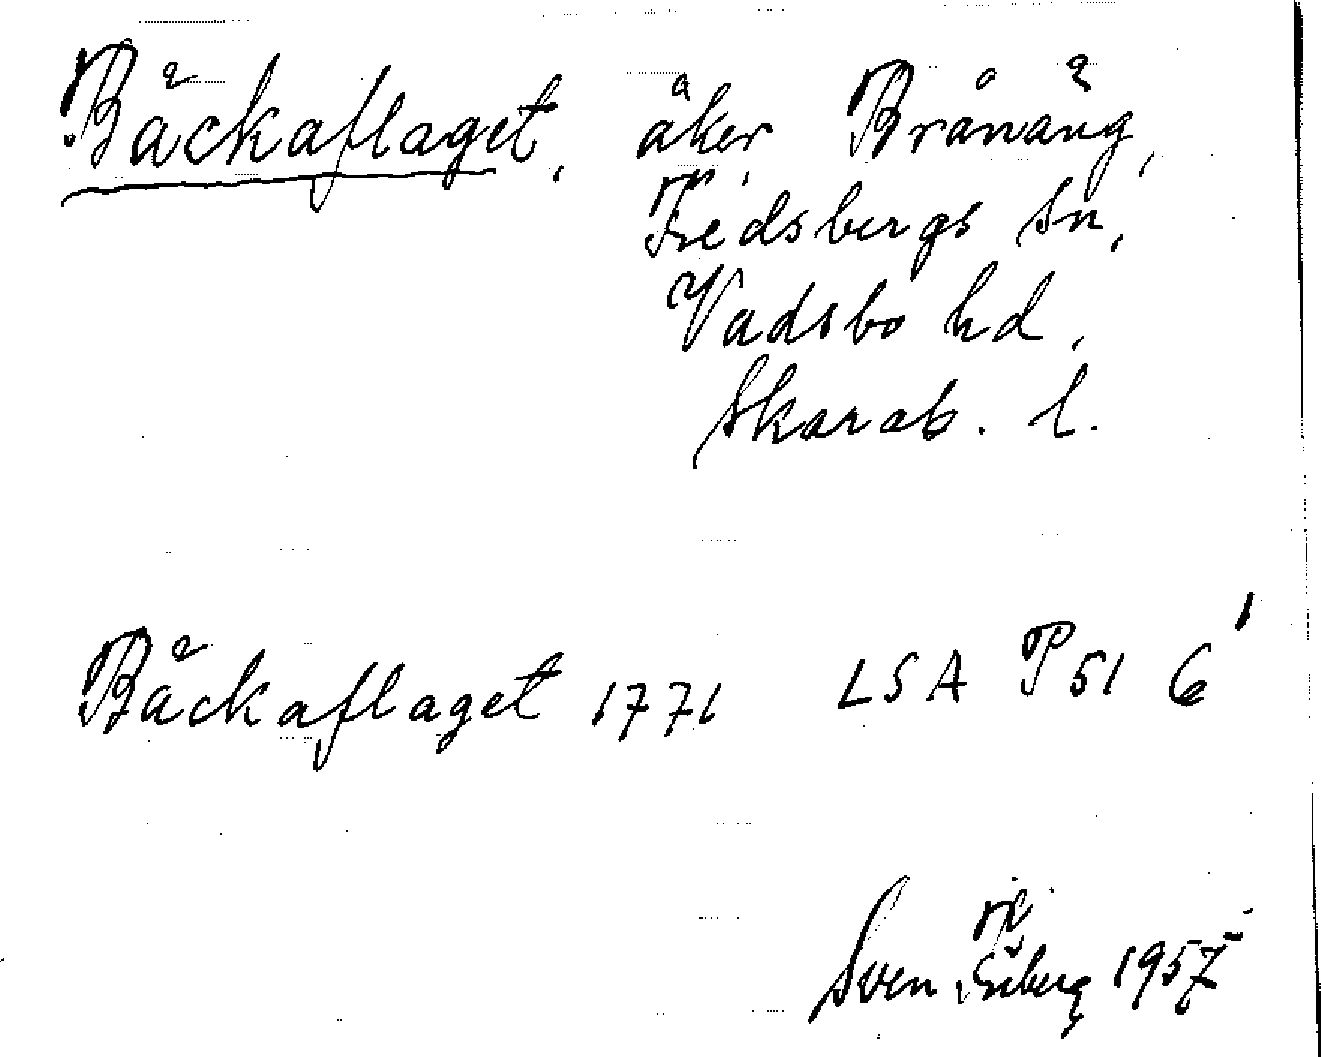 Bäckaflaget, åker, Brånäng,
Fredsbergs sn,
Vadsbo hd,
Skarab. l.
Bäckaflaget 1771 LSA P51 6¹
Sven Friberg 1957